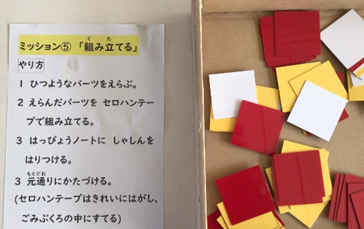 ミッション⑤ 「組み立てる」
やり方
1 ひつようなパーツをえらぶ。
2 えらんだパーツを セロハンテー
プで組み立てる。
3 はっぴょうノートに しゃしんを
はりつける。
3 元通りにかたづける。
(セロハンテープはきれいにはがし、
ごみぶくろの中にすてる)